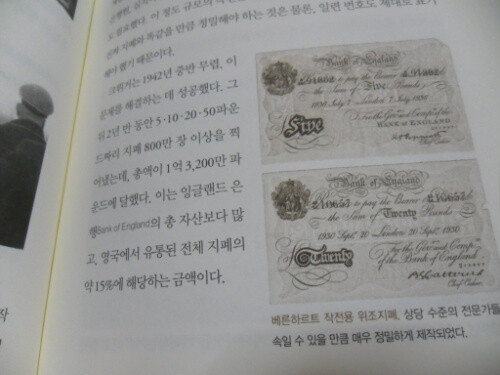 도 필요했다. 이 정도 규모의
진짜 지폐와 똑같을 만큼 정밀해야 하는 것은 물론, 일련 번호도 제대로 표기
해야 했기 때문이다.
크뤼거는 1942년 중반 무렵, 이
문제를 해결하는 데 성공했다. 그
뒤 2년 반 동안 5·10·20·50파운
드짜리 지폐 800만 장 이상을 찍
어냈는데, 총액이 1억 3,200만 파
운드에 달했다. 이는 잉글랜드 은
행Bank of England의 총 자산보다 많
고, 영국에서 유통된 전체 지폐의
약 15%에 해당하는 금액이다.
Bank of England
to pay the Bearer
the Sum of Five Pounds
1930 July 7 London 7 July 1930
For the Gov.r and Comp.a of the
BANK of ENGLAND
Five
Chief Cashier
Bank of England
to pay the Bearer
the Sum of Twenty Pounds
1930 Sept.r 20 London 20 Sept.r 1930
For the Gov.r and Comp.a
of the Bank of England
Twenty
Chief Cashier
베른하르트 작전용 위조지폐. 상당 수준의 전문가들
속일 수 있을 만큼 매우 정밀하게 제작되었다.